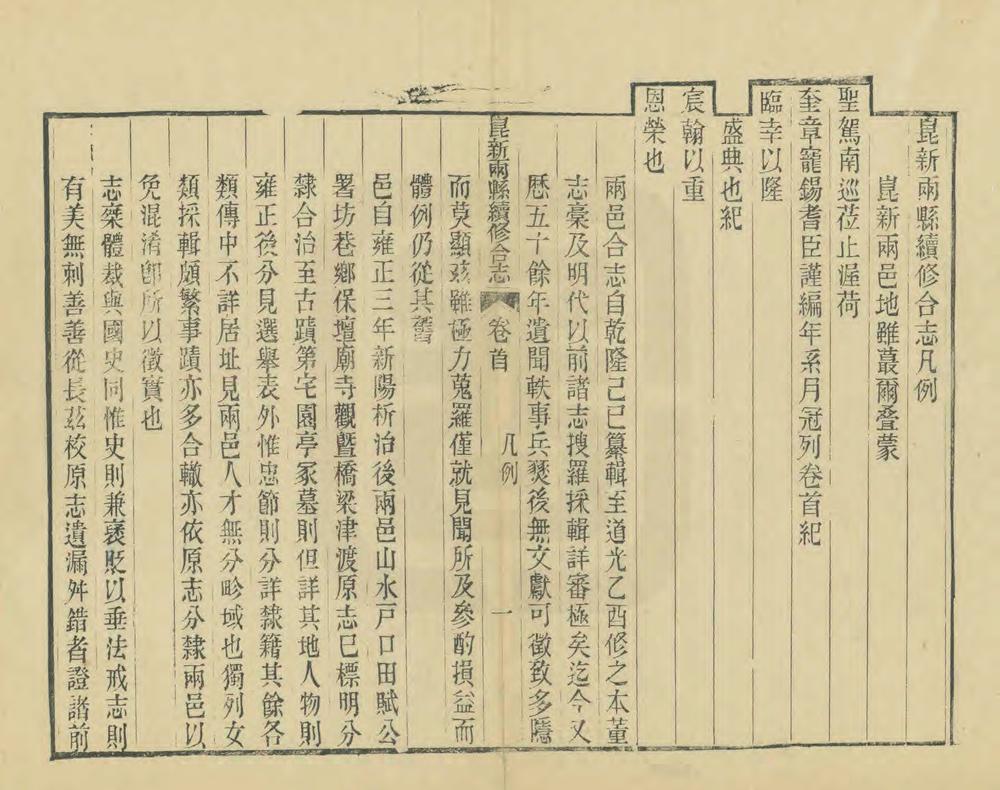 崑新兩縣續修合志凡例
崑新兩邑地雖蕞爾疊蒙
聖駕南巡蒞止渥荷
奎章寵錫耆臣謹編年系月冠列卷首紀
臨幸以隆
盛典也紀
宸翰以重
恩榮也
兩邑合志自乾隆己巳纂輯至道光乙酉修之本董
志稾及明代以前諸志搜羅採輯詳審極矣迄今又
歷五十餘年遺聞軼事兵燹後無文獻可徵致多隱
崑新兩縣續修合志 卷首 凡例 一
而莫顯茲雖極力蒐羅僅就見聞所及參酌損益而
體例仍從其舊
邑自雍正三年新陽析治後兩邑山水戸口田賦公
署坊巷鄉保壇廟寺觀曁橋梁津渡原志已標明分
隸合治至古蹟第宅園亭冢墓則但詳其地人物則
雍正後分見選舉表外惟忠節則分詳隸籍其餘各
類傳中不詳居址見兩邑人才無分畛域也獨列女
類採輯頗繁事蹟亦多合轍亦依原志分隸兩邑以
免混淆卽所以徵實也
志乘體裁與國史同惟史則兼褒貶以垂法戒志則
有美無刺善善從長茲校原志遺漏舛錯者證諸前